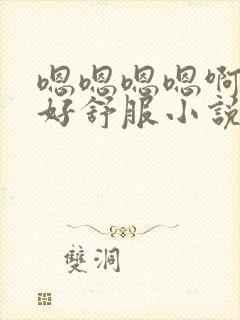 嗯嗯嗯嗯啊
好舒服小説
雙洞